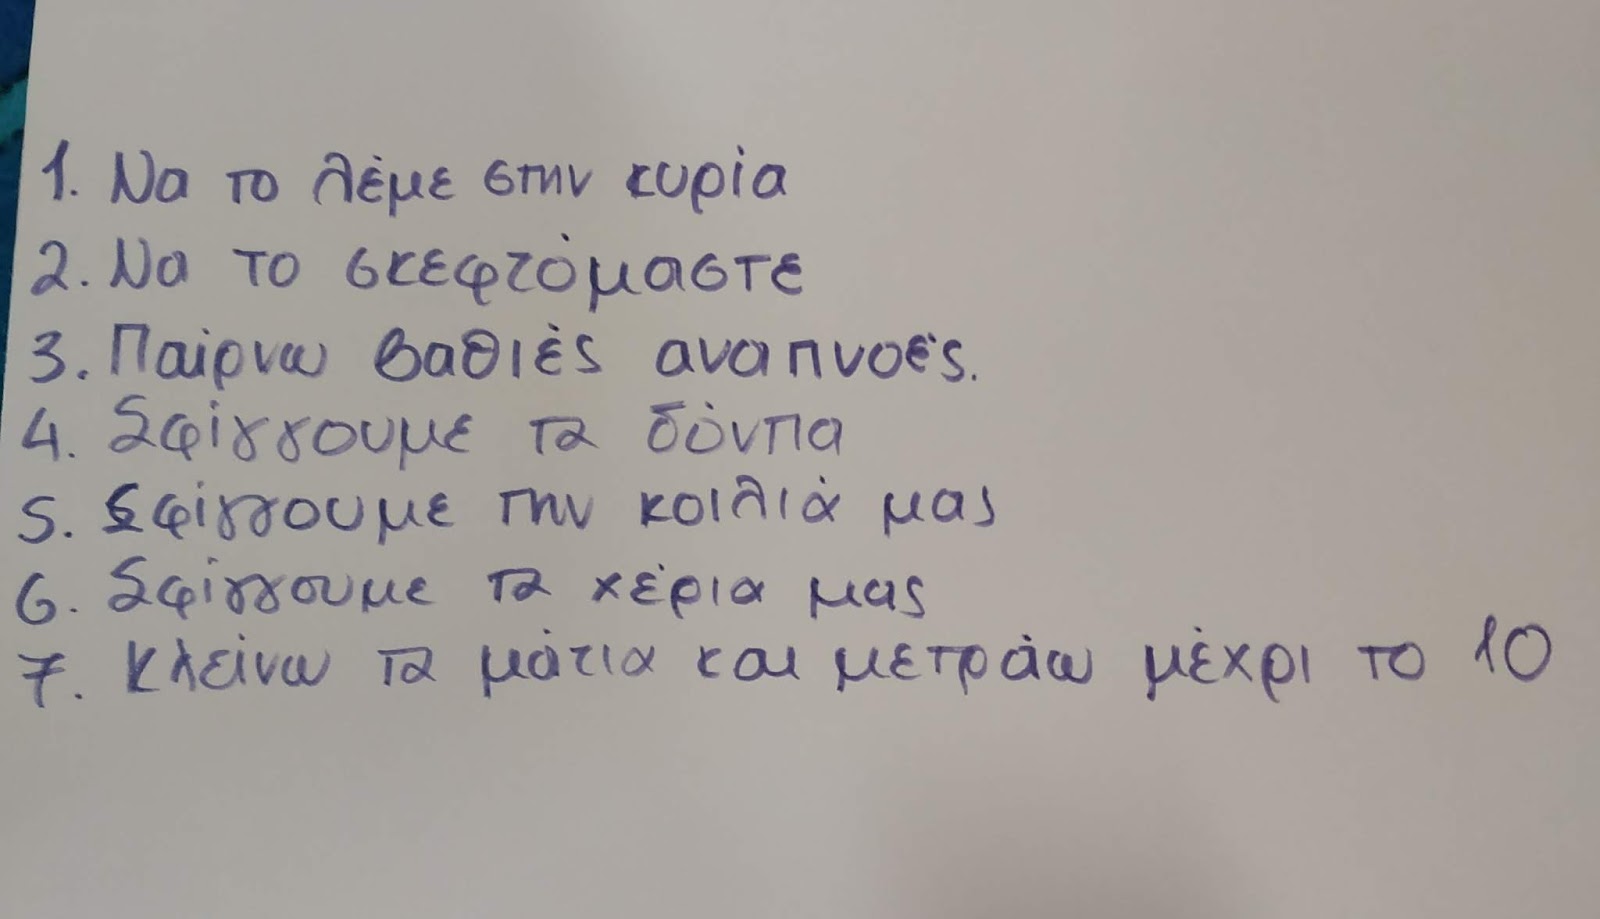 1. Να το λέμε στην κυρία
2. Να το σκεφτόμαστε
3. Παίρνω βαθιές αναπνοές.
4. Σφίγγουμε τα δόντια
5. Σφίγγουμε την κοιλιά μας
6. Σφίγγουμε τα χέρια μας
7. Κλείνω τα μάτια και μετράω μέχρι το 10